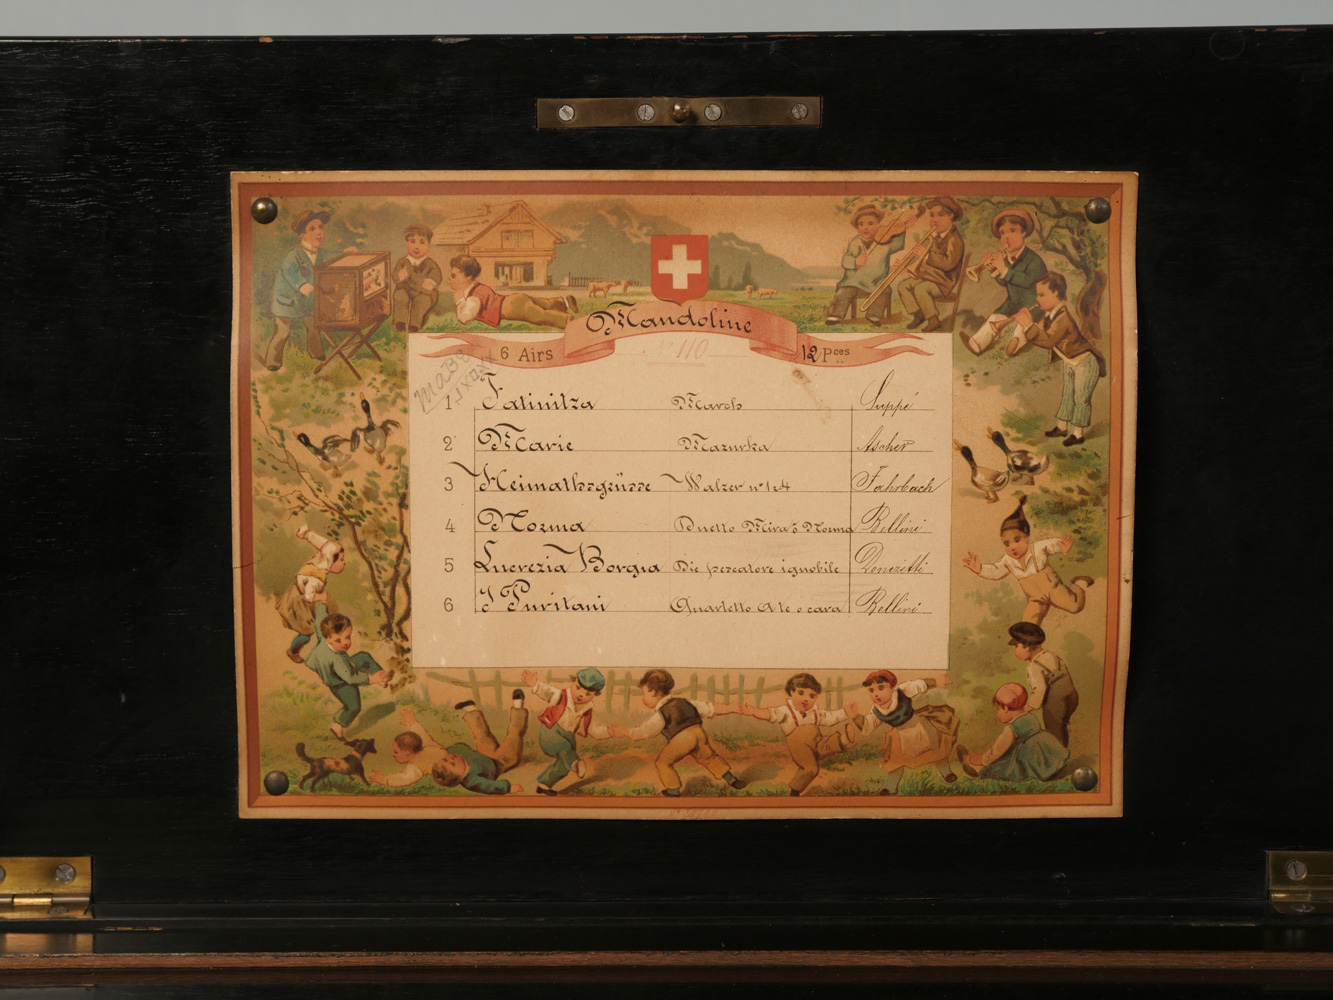 Mandoline
6 Airs 12 Pces
Nº 110
1 Fatinitza March Suppé
2 Marie Mazurka Ascher
3 Heimathsgrüsse Walzer nº 1 & 4 Fahrbach
4 Norma Duetto Mira o Norma Bellini
5 Lucrezia Borgia Die pescatore ignobile Donizetti
6 I Puritani Quartetto A te o cara Bellini